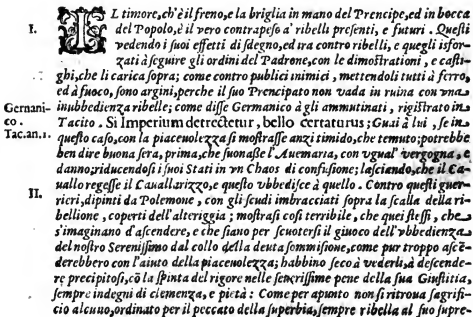 I.
IL timore, ch'è il freno, e la briglia in mano del Prencipe, ed in bocca
del Popolo, è il vero contrapeso a' ribelli presenti, e futuri. Questi
vedendo i suoi effetti di sdegno, ed ira contro ribelli, e quegli isfor-
zati à seguire gli ordini del Padrone, con le dimostrationi, e casti-
ghi, che li carica sopra; come contro publici inimici, mettendoli tutti à ferro,
ed à fuoco, sono argini, perche il suo Prencipato non vada in ruina con vna
Germani-
co.
Tac. an. 1.
inubbedienza ribelle; come disse Germanico à gli ammutinati, rigistrato in
Tacito. Si Imperium detrectetur, bello certaturus; Guai à lui, se in
questo caso, con la piaceuolezza si mostrasse anzi timido, che temuto; potrebbe
ben dire buona sera, prima, che suonasse l'Auemaria, con vgual' vergogna, e
danno; riducendosi i suoi Stati in vn Chaos di confusione; lasciando, che il Ca-
uallo regesse il Cauallarizzo, e questo vbbedisce à quello. Contro questi guer-
II.
rieri, dipinti da Polemone, con gli scudi imbracciati sopra la scalla della ri-
bellione, coperti dell'alteriggia; mostrasi così terribile, che quei stessi, che
s'imaginano d'ascendere, e che siano per scuotersi il giuoco dell'vbbedienza
del nostro Serenissimo dal collo della deuta sommisione, come pur troppo ascē-
derebbero con l'aiuto della piaceuolezza; habbino seco à vederli, à descende-
re precipitosi, cō la spinta del rigore nelle seuerissime pene della sua Giustitia,
sempre indegni di clemenza, e pietà: Come per apunto non si ritroua sagrifi-
cio alcuno, ordinato per il peccato della superbia, sempre ribella al suo supre-